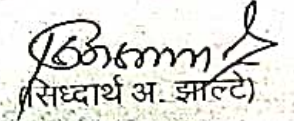 (सिध्दार्थ अ. झाल्टे)